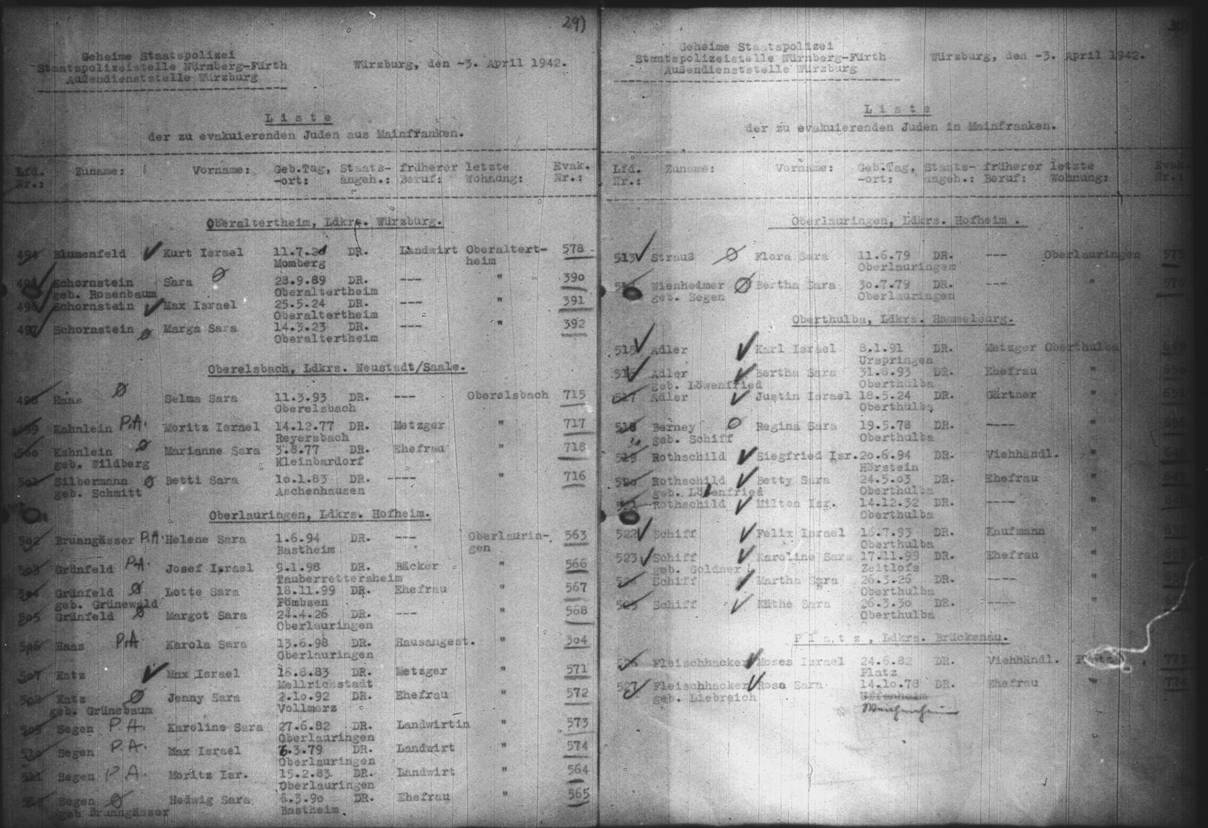 29)
Geheime Staatspolizei
Staatspolizeistelle Nürnberg-Fürth
Außendienststelle Würzburg
Würzburg, den -3. April 1942.
Liste
der zu evakuierenden Juden aus Mainfranken.
Lfd. Zuname: Vorname: Geb.Tag, Staats- früherer letzte Evak.
Nr.: -ort: angeh.: Beruf: Wohnung: Nr.:
Oberaltertheim, Ldkrs. Würzburg.
494 Blumenfeld Kurt Israel DR. Landwirt Oberaltert- 578
Momberg heim
Schornstein Sara 28.9.89 DR. --- " 390
geb. Rosenbaum Oberaltertheim
Schornstein Max Israel 25.5.24 DR. --- " 391
Oberaltertheim
497 Schornstein Marga Sara 14.3.23 DR. --- " 392
Oberaltertheim
Oberelsbach, Ldkrs. Neustadt/Saale.
498 Selma Sara 11.3.93 DR. --- Oberelsbach 715
Oberelsbach
499 Kahnlein P.A. Moritz Israel 14.12.77 DR. Metzger " 717
Reyersbach
500 Kahnlein Marianne Sara 3.8.77 DR. Ehefrau " 718
geb. Wildberg Kleinbardorf
501 Silbermann Betti Sara 10.1.83 DR. ---- " 716
geb. Schmitt Aschenhausen
Oberlauringen, Ldkrs. Hofheim.
502 Brunngässer P.A. Helene Sara 1.6.94 DR. --- Oberlaurin- 563
Bastheim gen
503 Grünfeld P.A. Josef Israel 9.1.98 DR. Bäcker " 566
Tauberrettersheim
504 Grünfeld Lotte Sara 18.11.99 DR. Ehefrau " 567
geb. Grünewald Pömbsen
505 Grünfeld Margot Sara 24.4.26 DR. --- " 568
Oberlauringen
506 Haas P.A. Karola Sara 13.6.98 DR. Hausangest. " 304
Oberlauringen
507 Katz Max Israel 16.8.83 DR. Metzger " 571
Mellrichstadt
508 Katz Jenny Sara 2.10.92 DR. Ehefrau " 572
geb. Grünebaum Vollmerz
509 Segen P.A. Karoline Sara 27.6.82 DR. Landwirtin " 573
Oberlauringen
510 Segen P.A. Max Israel 3.79 DR. Landwirt " 574
Oberlauringen
511 Segen P.A. Moritz Isr. 15.2.83 DR. Landwirt " 564
Oberlauringen
512 Segen Hedwig Sara 6.3.90 DR. Ehefrau " 565
geb Brunngässer Bastheim.
Geheime Staatspolizei
Staatspolizeistelle Nürnberg-Fürth
Außendienststelle Würzburg
Würzburg, den -3. April 1942.
Liste
der zu evakuierenden Juden in Mainfranken.
Lfd. Zuname: Vorname: Geb.Tag, Staats- früherer letzte Evak.
Nr.: -ort: angeh.: Beruf: Wohnung: Nr.:
Oberlauringen, Ldkrs. Hofheim.
513 Strauß Flora Sara 11.6.79 DR. --- Oberlauringen
Oberlauringen
Wienheimer Bertha Sara 30.7.79 DR. --- "
geb. Segen Oberlauringen
Oberthulba, Ldkrs. Hammelburg.
515 Adler Karl Israel 8.1.91 DR. Metzger Oberthulba
Urspringen
516 Adler Bertha Sara 31.8.93 DR. Ehefrau "
geb. Löwenfried Oberthulba
517 Adler Justin Israel 18.5.24 DR. Gärtner "
Oberthulba
518 Berney Regina Sara 19.5.78 DR. ---- "
geb. Schiff Oberthulba
519 Rothschild Siegfried Isr. 20.6.94 DR. Viehhändl. "
Hörstein
520 Rothschild Betty Sara 24.5.03 DR. Ehefrau "
geb. Löwenfried Oberthulba
Rothschild Milton Isr. 14.12.32 DR. ---- "
Oberthulba
522 Schiff Felix Israel 16.7.93 DR. Kaufmann "
Oberthulba
523 Schiff Karoline Sara 17.11.99 DR. Ehefrau "
geb. Goldner Zeitlofs
Schiff Martha Sara 26.3.26 DR. ---- "
Oberthulba
525 Schiff Käthe Sara 26.3.30 DR. ---- "
Oberthulba
Platz, Ldkrs. Brückenau.
526 Fleischhacker Moses Israel 24.6.82 DR. Viehhändl.
Platz
527 Fleischhacker Rosa Sara 14.10.78 DR. Ehefrau "
geb. Liebreich